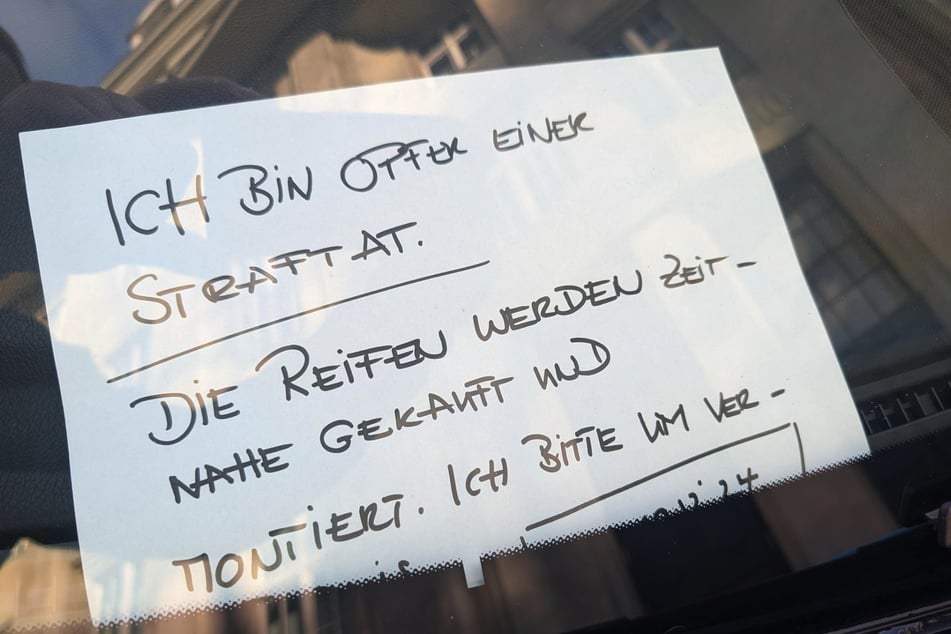 ICH BIN OPFER EINER
STRAFTAT.
DIE REIFEN WERDEN ZEIT-
NAHE GEKAUFT UND
MONTIERT. ICH BITTE UM VER-